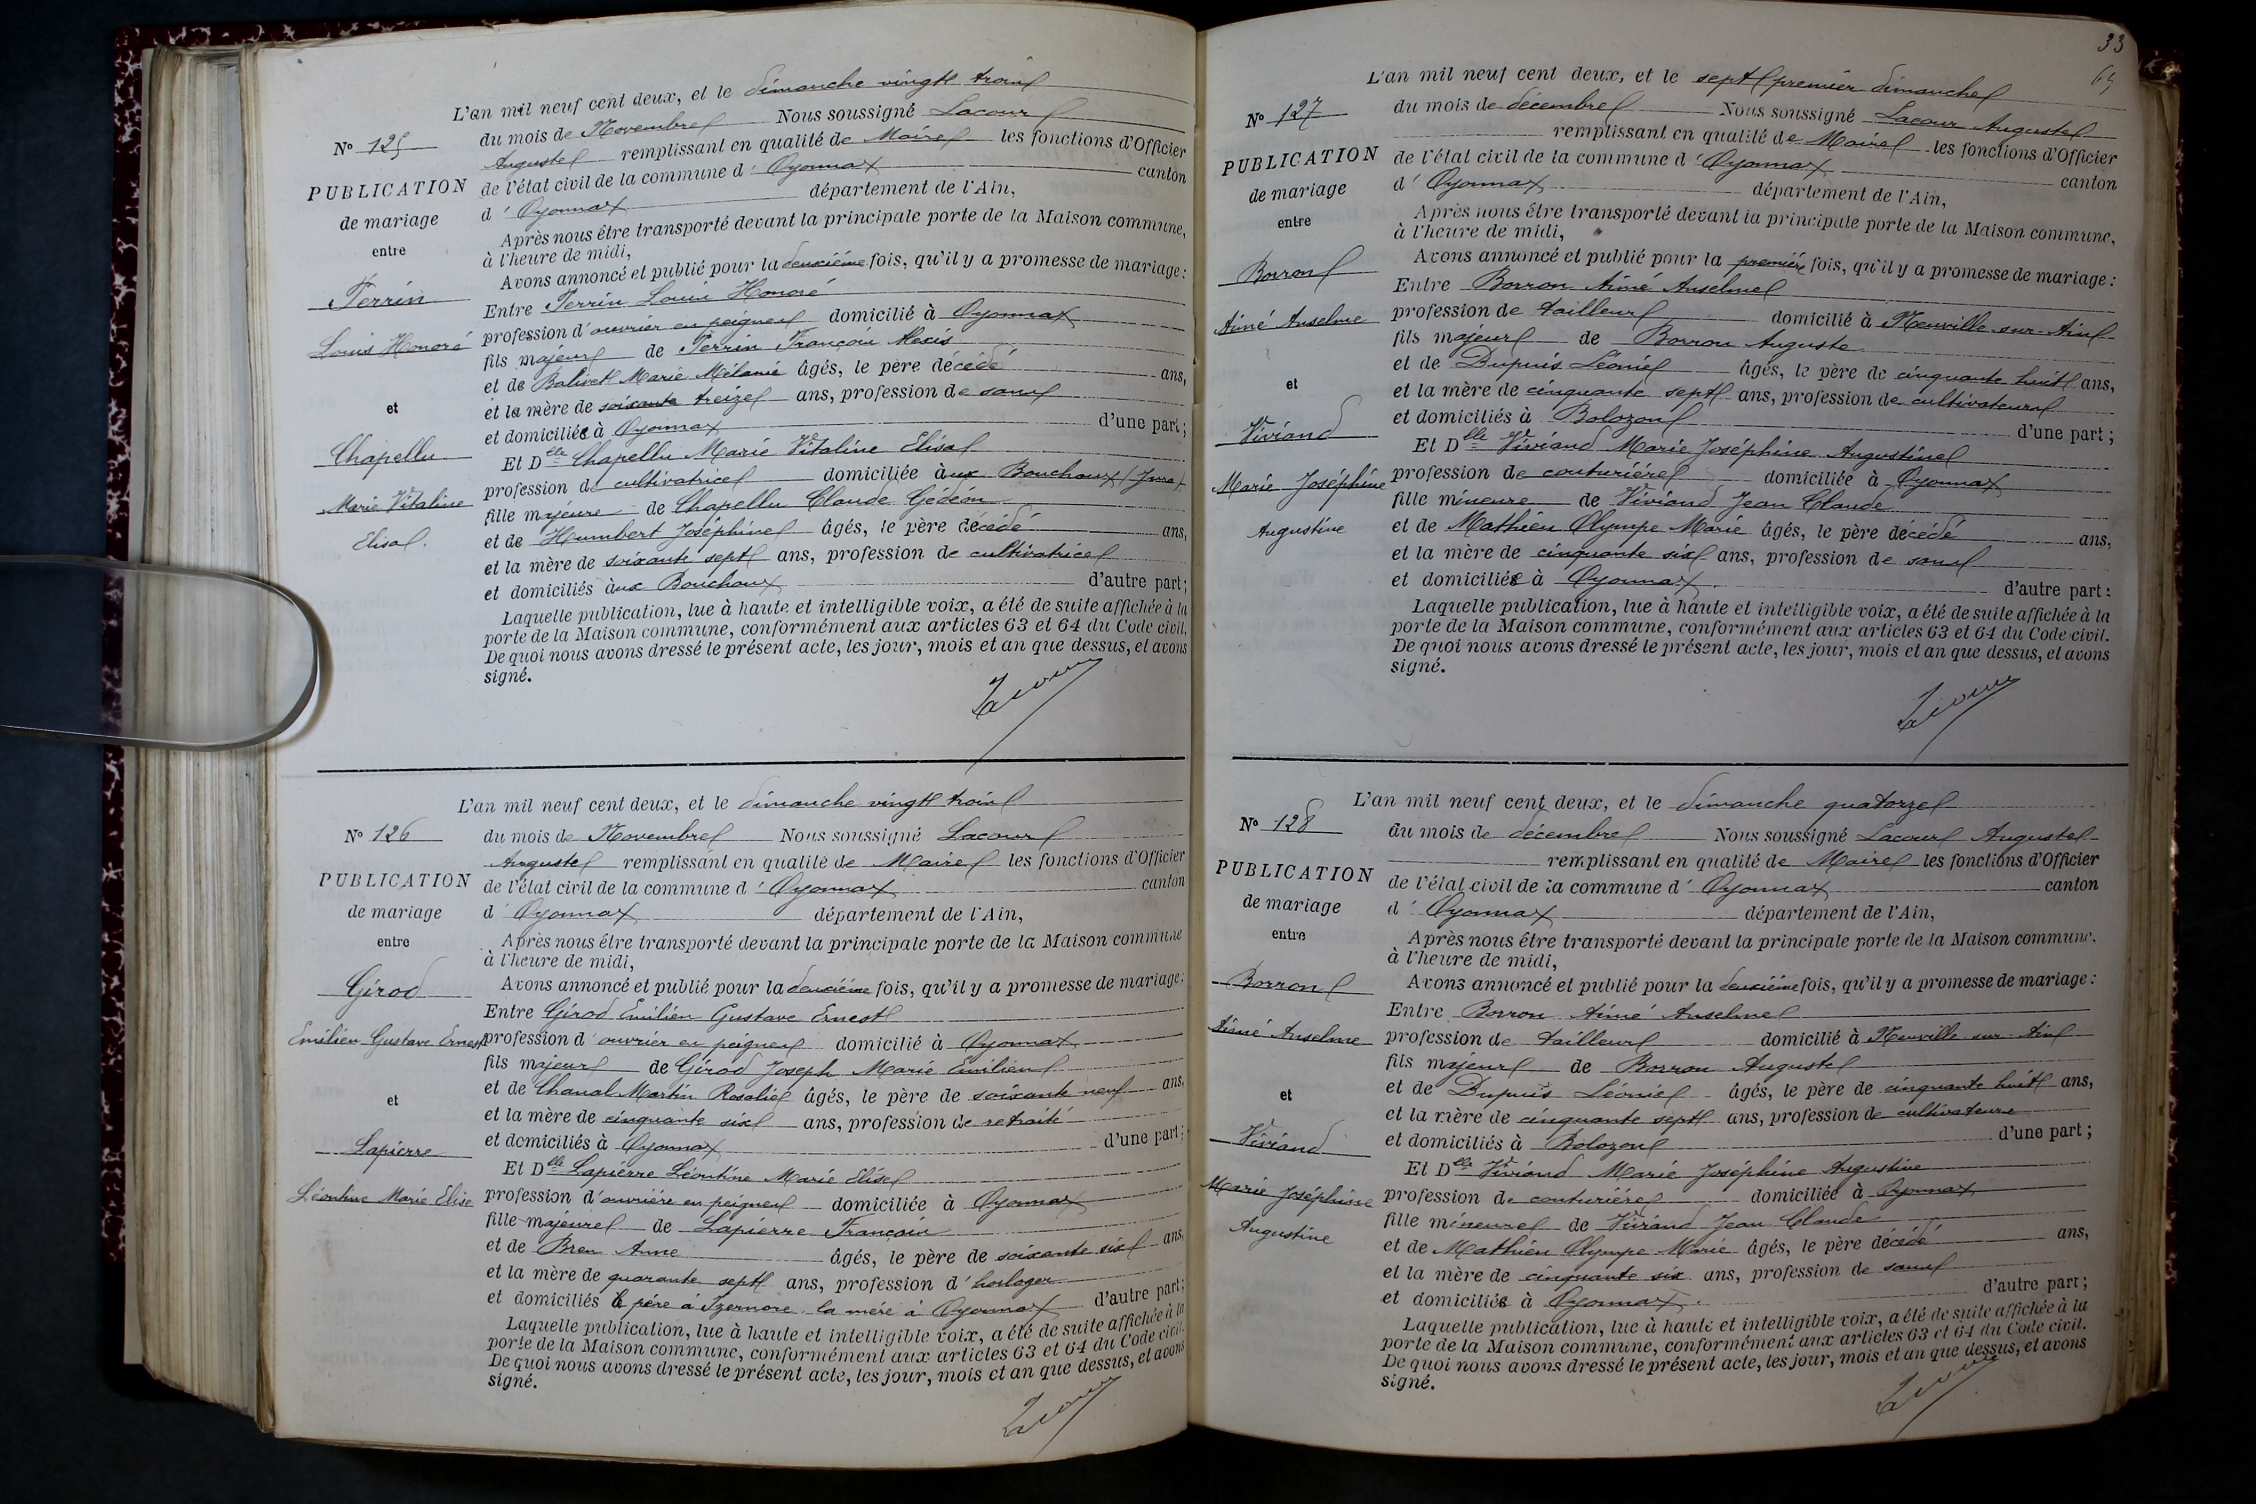 L'an mil neuf cent deux, et le dimanche vingt trois
Nº 125
du mois de Novembre Nous soussigné Lacour
Auguste remplissant en qualité de Maire les fonctions d'Officier
PUBLICATION
de l'état civil de la commune d'Oyonnax canton
de mariage
d'Oyonnax département de l'Ain,
entre
Après nous être transporté devant la principale porte de la Maison commune,
à l'heure de midi,
Avons annoncé et publié pour la deuxième fois, qu'il y a promesse de mariage :
Perrin
Entre Perrin Louis Honoré
Louis Honoré
profession d'ouvrier en peignes domicilié à Oyonnax
fils majeur de Perrin François Alexis
et de Balivet Marie Mélanie âgés, le père décédé ans,
et
et la mère de soixante treize ans, profession de sans
et domiciliée à Oyonnax d'une part ;
Chapellu
Et Dlle Chapellu Marie Vitaline Elisa
profession de cultivatrice domiciliée aux Bouchoux (Jura)
Marie Vitaline
fille majeure de Chapellu Claude Gédéon
Elisa.
et de Humbert Joséphine âgés, le père décédé ans,
et la mère de soixante sept ans, profession de cultivatrice
et domiciliés aux Bouchoux d'autre part ;
Laquelle publication, lue à haute et intelligible voix, a été de suite affichée à la
porte de la Maison commune, conformément aux articles 63 et 64 du Code civil.
De quoi nous avons dressé le présent acte, les jour, mois et an que dessus, et avons
signé.
Lacour
L'an mil neuf cent deux, et le dimanche vingt trois
Nº 126
du mois de Novembre Nous soussigné Lacour
Auguste remplissant en qualité de Maire les fonctions d'Officier
PUBLICATION
de l'état civil de la commune d'Oyonnax canton
de mariage
d'Oyonnax département de l'Ain,
entre
Après nous être transporté devant la principale porte de la Maison commune
à l'heure de midi,
Girod
Avons annoncé et publié pour la deuxième fois, qu'il y a promesse de mariage :
Entre Girod Emilien Gustave Ernest
Emilien Gustave Ernest
profession d'ouvrier en peignes domicilié à Oyonnax
fils majeur de Girod Joseph Marie Emilien
et de Chanal-Martin Rosalie âgés, le père de soixante neuf ans,
et
et la mère de cinquante six ans, profession de retraité
et domiciliés à Oyonnax d'une part ;
Lapierre
Et Dlle Lapierre Léontine Marie Elise
Léontine Marie Elise
profession d'ouvrière en peignes domiciliée à Oyonnax
fille majeure de Lapierre François
et de Bren Anne âgés, le père de soixante six ans,
et la mère de quarante sept ans, profession d'horloger
et domiciliés le père à Izernore la mère à Oyonnax d'autre part ;
Laquelle publication, lue à haute et intelligible voix, a été de suite affichée à la
porte de la Maison commune, conformément aux articles 63 et 64 du Code civil.
De quoi nous avons dressé le présent acte, les jour, mois et an que dessus, et avons
signé.
Lacour
33
L'an mil neuf cent deux, et le sept premier dimanche
Nº 127
du mois de décembre Nous soussigné Lacour Auguste
remplissant en qualité de Maire les fonctions d'Officier
PUBLICATION
de l'état civil de la commune d'Oyonnax canton
de mariage
d'Oyonnax département de l'Ain,
entre
Après nous être transporté devant la principale porte de la Maison commune,
à l'heure de midi,
Borron
Avons annoncé et publié pour la première fois, qu'il y a promesse de mariage :
Entre Borron Aimé Anselme
Aimé Anselme
profession de tailleur domicilié à Neuville-sur-Ain
fils majeur de Borron Auguste
et de Dupuis Léonie âgés, le père de cinquante huit ans,
et
et la mère de cinquante sept ans, profession de cultivateurs
et domiciliés à Bolozon d'une part ;
Viviand
Et Dlle Viviand Marie Joséphine Augustine
Marie Joséphine
profession de couturière domiciliée à Oyonnax
fille mineure de Viviand Jean Claude
Augustine
et de Mathieu Olympe Marie âgés, le père décédé ans,
et la mère de cinquante six ans, profession de sans
et domiciliée à Oyonnax. d'autre part :
Laquelle publication, lue à haute et intelligible voix, a été de suite affichée à la
porte de la Maison commune, conformément aux articles 63 et 64 du Code civil.
De quoi nous avons dressé le présent acte, les jour, mois et an que dessus, et avons
signé.
Lacour
L'an mil neuf cent deux, et le dimanche quatorze
Nº 128
du mois de décembre Nous soussigné Lacour Auguste
remplissant en qualité de Maire les fonctions d'Officier
PUBLICATION
de l'état civil de la commune d'Oyonnax canton
de mariage
d'Oyonnax département de l'Ain,
entre
Après nous être transporté devant la principale porte de la Maison commune,
à l'heure de midi,
Borron
Avons annoncé et publié pour la deuxième fois, qu'il y a promesse de mariage :
Entre Borron Aimé Anselme
Aimé Anselme
profession de tailleur domicilié à Neuville-sur-Ain
fils majeur de Borron Auguste
et de Dupuis Léonie âgés, le père de cinquante huit ans,
et
et la mère de cinquante sept ans, profession de cultivateurs
et domiciliés à Bolozon d'une part ;
Viviand
Et Dlle Viviand Marie Joséphine Augustine
Marie Joséphine
profession de couturière domiciliée à Oyonnax
Augustine
fille mineure de Viviand Jean Claude
et de Mathieu Olympe Marie âgés, le père décédé ans,
et la mère de cinquante six ans, profession de sans
et domiciliée à Oyonnax. d'autre part ;
Laquelle publication, lue à haute et intelligible voix, a été de suite affichée à la
porte de la Maison commune, conformément aux articles 63 et 64 du Code civil.
De quoi nous avons dressé le présent acte, les jour, mois et an que dessus, et avons
signé.
Lacour